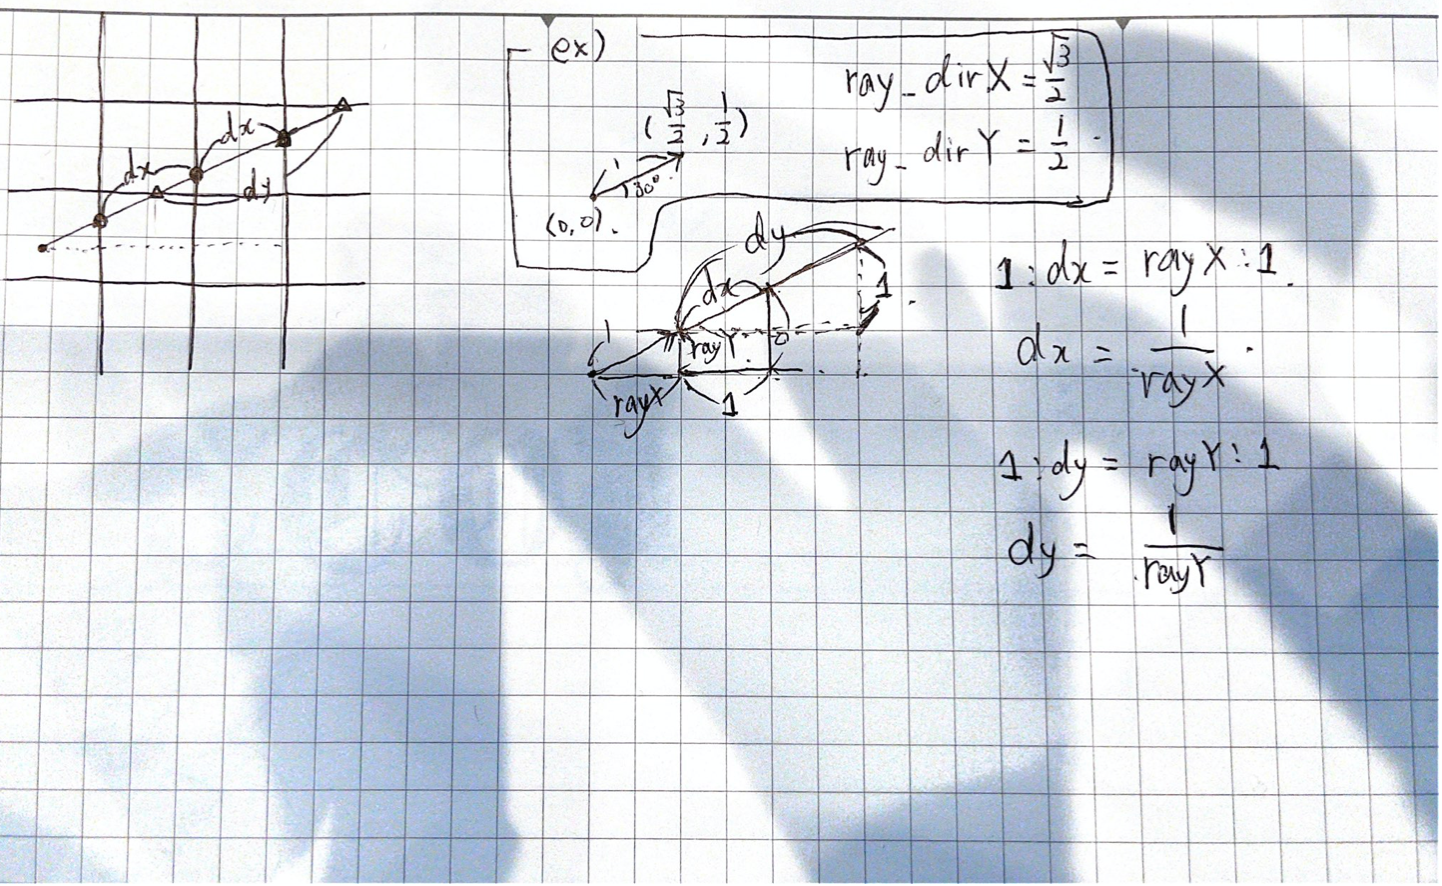 dx
dx
dy
ex)
(√3/2, 1/2)
1
30°
(0,0).
ray_dirX = √3/2
ray_dirY = 1/2
dy
dx
1
1
rayY
rayX
1
1 : dx = rayX : 1.
dx = 1/rayX
1 : dy = rayY : 1
dy = 1/rayY